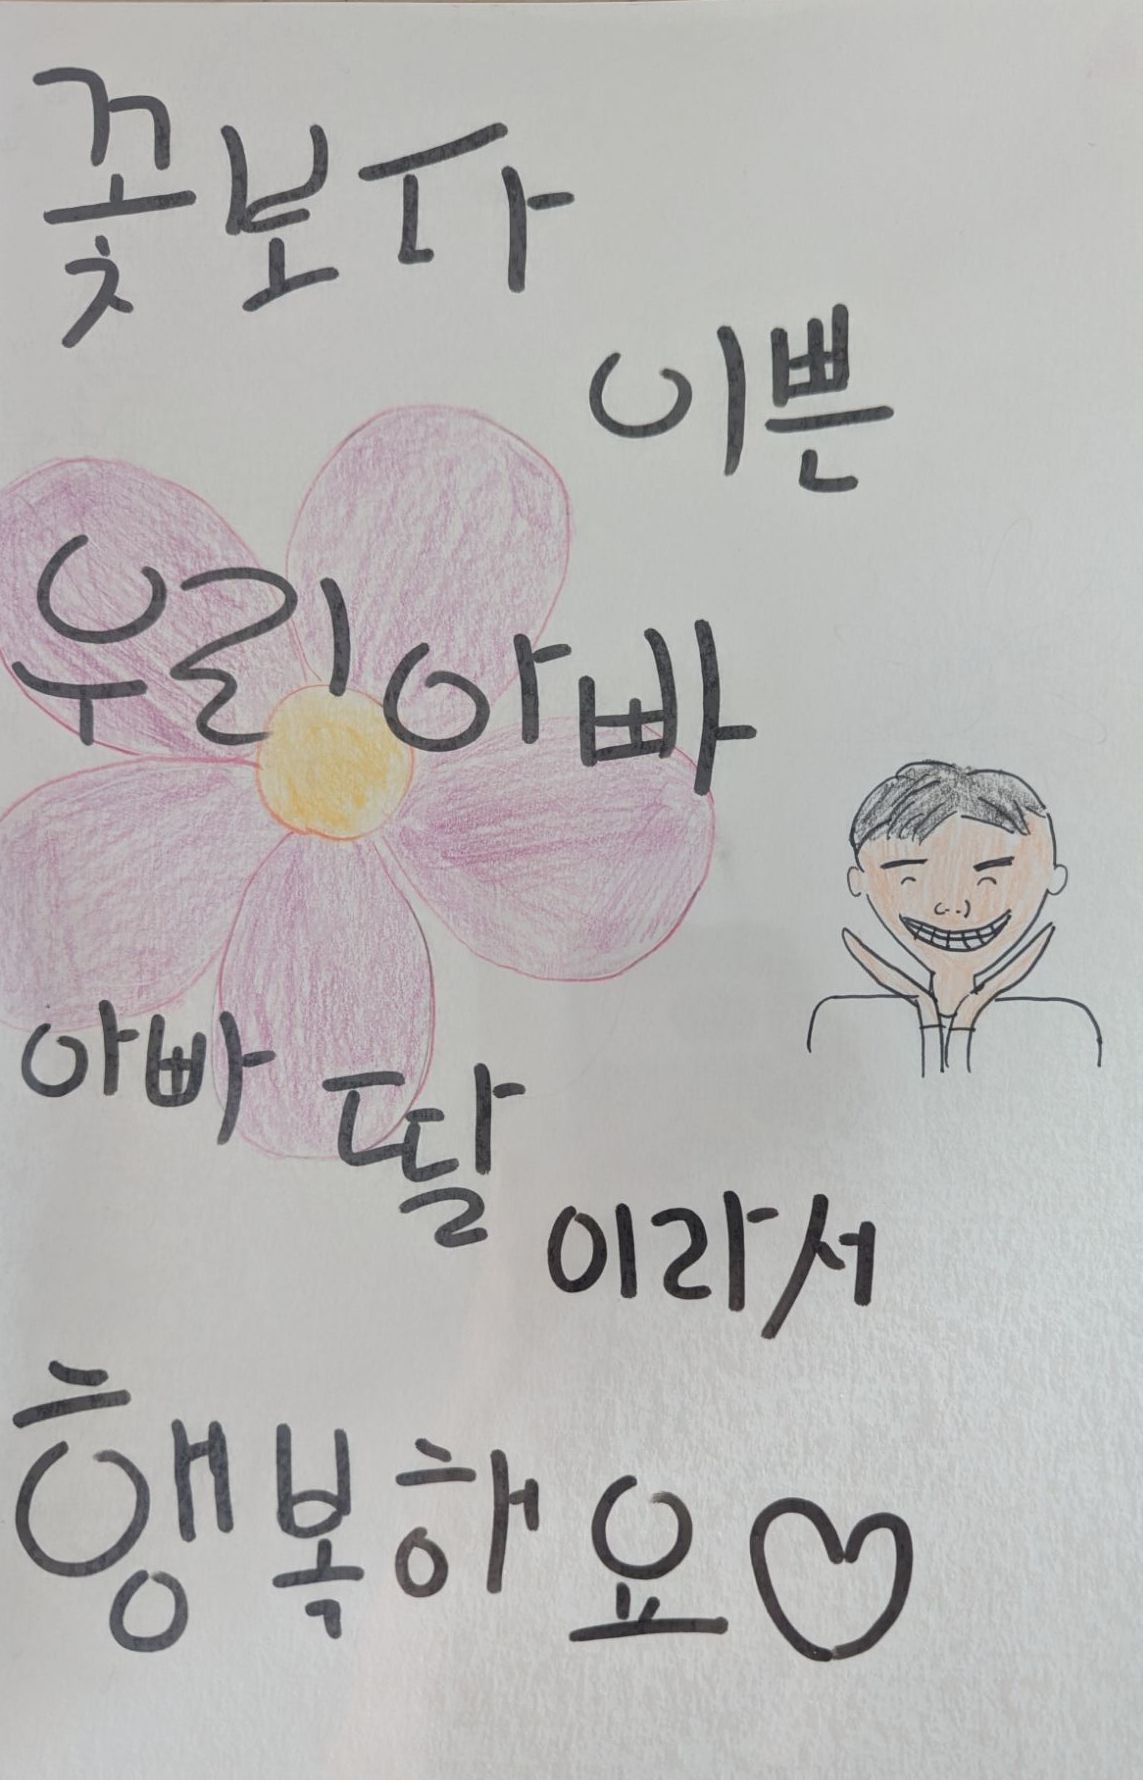 꽃보다
이쁜
우리아빠
아빠 딸
이라서
행복해요♡